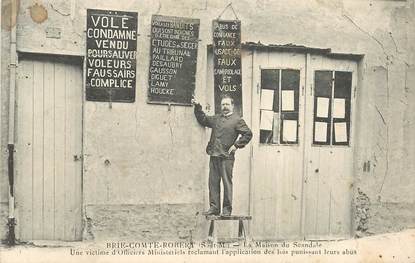 VOLÉ
CONDAMNÉ
VENDU
POURSAUVER
VOLEURS
FAUSSAIRES
COMPLICE
BANDITS
QUI SONT INDIGNES
ETUDES DE SEGEF
AU TRIBUNAL
PAILLARD
DESAUBRY
GAUSSON
DIGUET
LAMY
HOUCKE
ABUS
DE
CONFIANCE
FAUX
USAGE DE
FAUX
CAMBRIOLAGE
ET
VOLS
BRIE-COMTE-ROBERT (S.-et-M.) — La Maison du Scandale
Une victime d'Officiers Ministériels réclamant l'application des lois punissant leurs abus